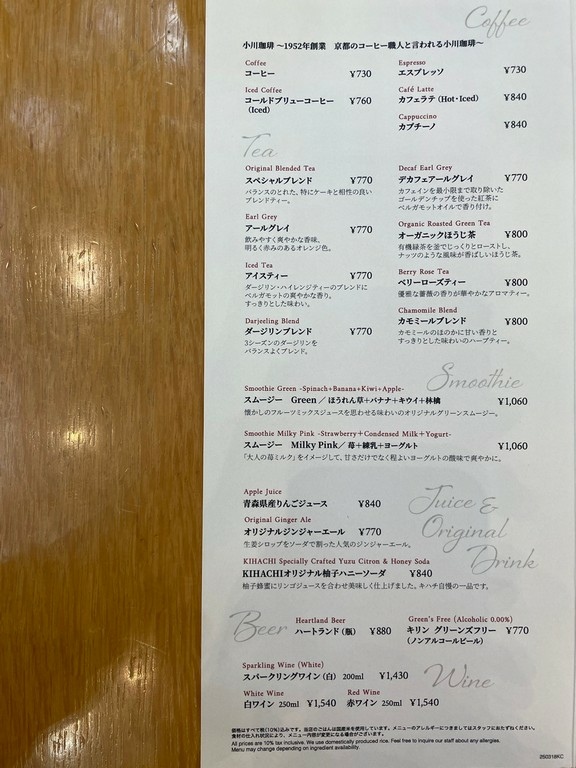 Coffee
小川珈琲 〜1952年創業　京都のコーヒー職人と言われる小川珈琲〜
Coffee
コーヒー ¥730
Iced Coffee
コールドブリューコーヒー ¥760
（Iced）
Espresso
エスプレッソ ¥730
Café Latte
カフェラテ（Hot・Iced） ¥840
Cappuccino
カプチーノ ¥840
Tea
Original Blended Tea
スペシャルブレンド ¥770
バランスのとれた、特にケーキと相性の良い
ブレンドティー。
Earl Grey
アールグレイ ¥770
飲みやすく爽やかな香味、
明るく赤みのあるオレンジ色。
Iced Tea
アイスティー ¥770
ダージリン・ハイレンジティーのブレンドに
ベルガモットの爽やかな香り。
すっきりとした味わい。
Darjeeling Blend
ダージリンブレンド ¥770
3シーズンのダージリンを
バランスよくブレンド。
Decaf Earl Grey
デカフェアールグレイ ¥770
カフェインを最小限まで取り除いた
ゴールデンチップを使った紅茶に
ベルガモットオイルで香り付け。
Organic Roasted Green Tea
オーガニックほうじ茶 ¥800
有機緑茶を釜でじっくりとローストし、
ナッツのような風味が香ばしいほうじ茶。
Berry Rose Tea
ベリーローズティー ¥800
優雅な薔薇の香りが華やかなアロマティー。
Chamomile Blend
カモミールブレンド ¥800
カモミールのほのかに甘い香りと
すっきりとした味わいのハーブティー。
Smoothie
Smoothie Green -Spinach+Banana+Kiwi+Apple-
スムージー　Green／ほうれん草＋バナナ＋キウイ＋林檎 ¥1,060
懐かしのフルーツミックスジュースを思わせる味わいのオリジナルグリーンスムージー。
Smoothie Milky Pink -Strawberry＋Condensed Milk＋Yogurt-
スムージー　Milky Pink／苺＋練乳＋ヨーグルト ¥1,060
「大人の苺ミルク」をイメージして、甘さだけでなく程よいヨーグルトの酸味で爽やかに。
Juice &
Original
Drink
Apple Juice
青森県産りんごジュース ¥840
Original Ginger Ale
オリジナルジンジャーエール ¥770
生姜シロップをソーダで割った人気のジンジャーエール。
KIHACHI Specially Crafted Yuzu Citron & Honey Soda
KIHACHIオリジナル柚子ハニーソーダ ¥840
柚子蜂蜜にリンゴジュースを合わせ美味しく仕上げました。キハチ自慢の一品です。
Beer
Heartland Beer
ハートランド（瓶） ¥880
Green's Free (Alcoholic 0.00%)
キリン グリーンズフリー ¥770
（ノンアルコールビール）
Wine
Sparkling Wine (White)
スパークリングワイン（白） 200ml ¥1,430
White Wine
白ワイン 250ml ¥1,540
Red Wine
赤ワイン 250ml ¥1,540
価格はすべて税(10%)込みです。当店のごはんは国産米を使用しています。メニューのアレルギーにつきましてはスタッフにおたずねください。
食材の仕入れ状況により、メニュー内容が変更になる場合がございます。
All prices are 10% tax inclusive. We use domestically produced rice. Feel free to inquire our staff about any allergies.
Menu may change depending on ingredient availability.
250318KC